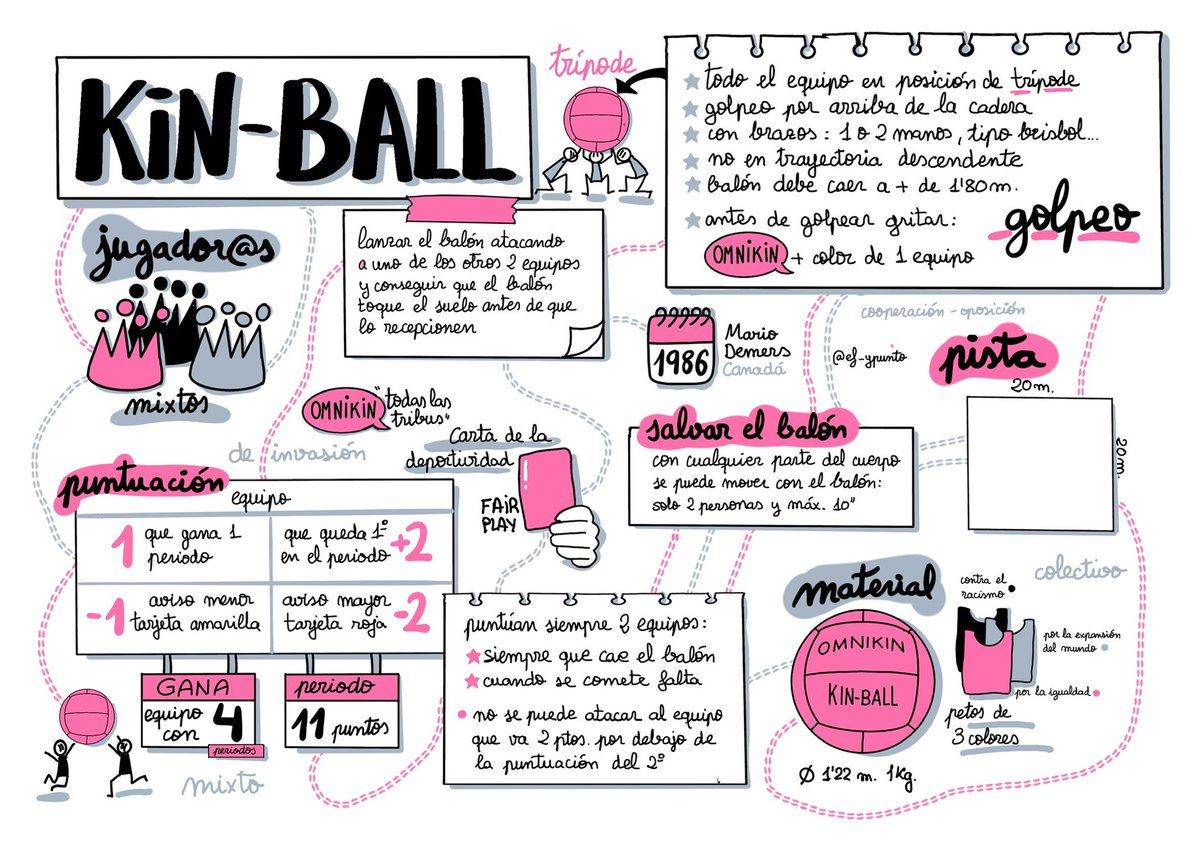 KiN-BALL
trípode
todo el equipo en posición de trípode
golpeo por arriba de la cadera
con brazos: 1 o 2 manos, tipo beisbol...
no en trayectoria descendente
balón debe caer a + de 1'80 m.
antes de golpear gritar:
OMNIKIN + color de 1 equipo
golpeo
jugador@s
mixtos
lanzar el balón atacando
a uno de los otros 2 equipos
y conseguir que el balón
toque el suelo antes de que
lo recepcionen
1986
Mario
Demers
Canadá
cooperación - oposición
@ef-ypunto
pista
20 m.
20 m.
OMNIKIN
"todas las
tribus"
de invasión
Carta de la
deportividad
FAIR
PLAY
salvar el balón
con cualquier parte del cuerpo
se puede mover con el balón:
solo 2 personas y máx. 10"
puntuación
equipo
1 que gana 1
periodo
que queda 1º
en el periodo +2
-1 aviso menor
tarjeta amarilla
aviso mayor
tarjeta roja -2
GANA
equipo
con 4
periodos
periodo
11 puntos
mixto
puntúan siempre 2 equipos:
siempre que cae el balón
cuando se comete falta
no se puede atacar al equipo
que va 2 ptos. por debajo de
la puntuación del 2º
material
OMNIKIN
KIN-BALL
Ø 1'22 m. 1Kg.
contra el
racismo
colectivo
por la expansión
del mundo
por la igualdad
petos de
3 colores